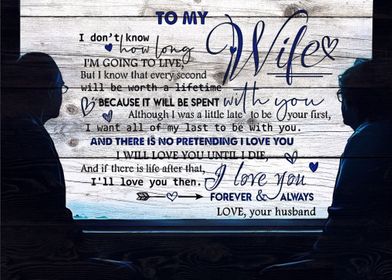 TO MY
Wife
I don't know
how long
I'M GOING TO LIVE,
But I know that every second
will be worth a lifetime
BECAUSE IT WILL BE SPENT with you
Although I was a little late to be your first,
I want all of my last to be with you.
AND THERE IS NO PRETENDING I LOVE YOU
I WILL LOVE YOU UNTIL I DIE,
And if there is life after that,
I'll love you then. I love you
FOREVER & ALWAYS
LOVE, your husband